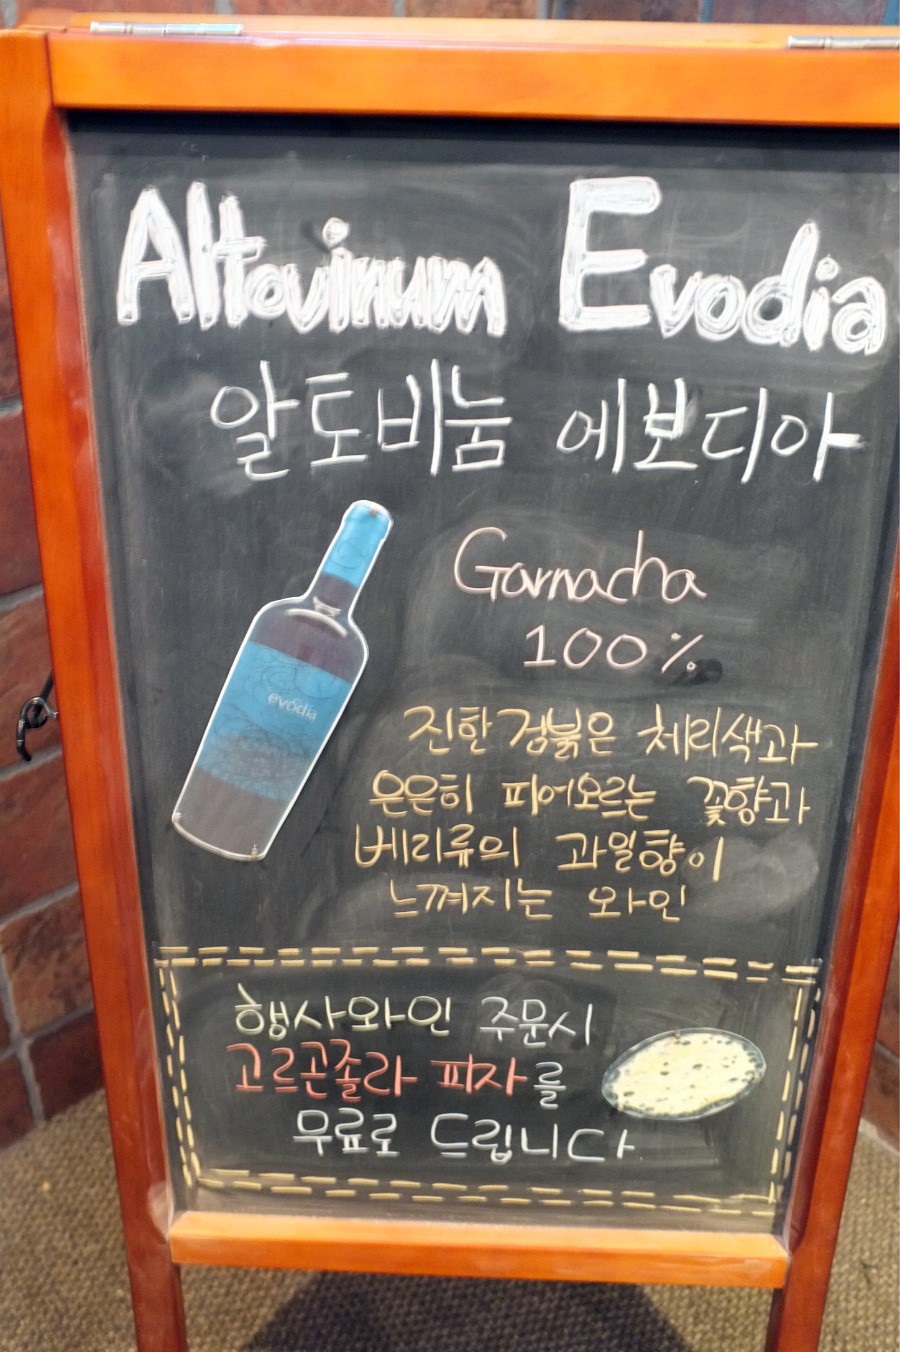 Altovinum Evodia
알토비눔 에보디아
evodia
Garnacha
100%
진한 검붉은 체리색과
은은히 피어오르는 꽃향과
베리류의 과일향이
느껴지는 와인
행사와인 주문시
고르곤졸라 피자를
무료로 드립니다.